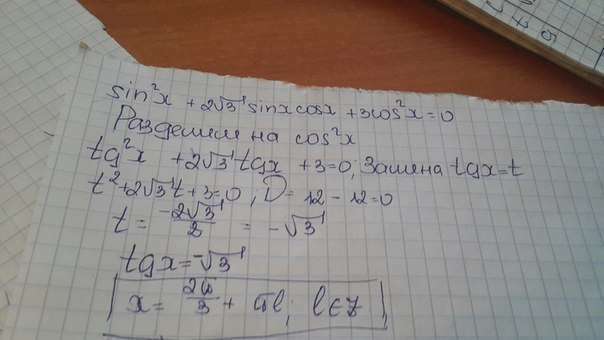 sin²x + 2√3 sinx cosx + 3cos²x = 0
Разделим на cos²x
tg²x + 2√3 tgx + 3 = 0; Замена tgx = t
t² + 2√3 t + 3 = 0, D = 12 - 12 = 0
t = -2√3/2 = -√3
tgx = -√3
x = 2π/3 + πl; l ∈ Z